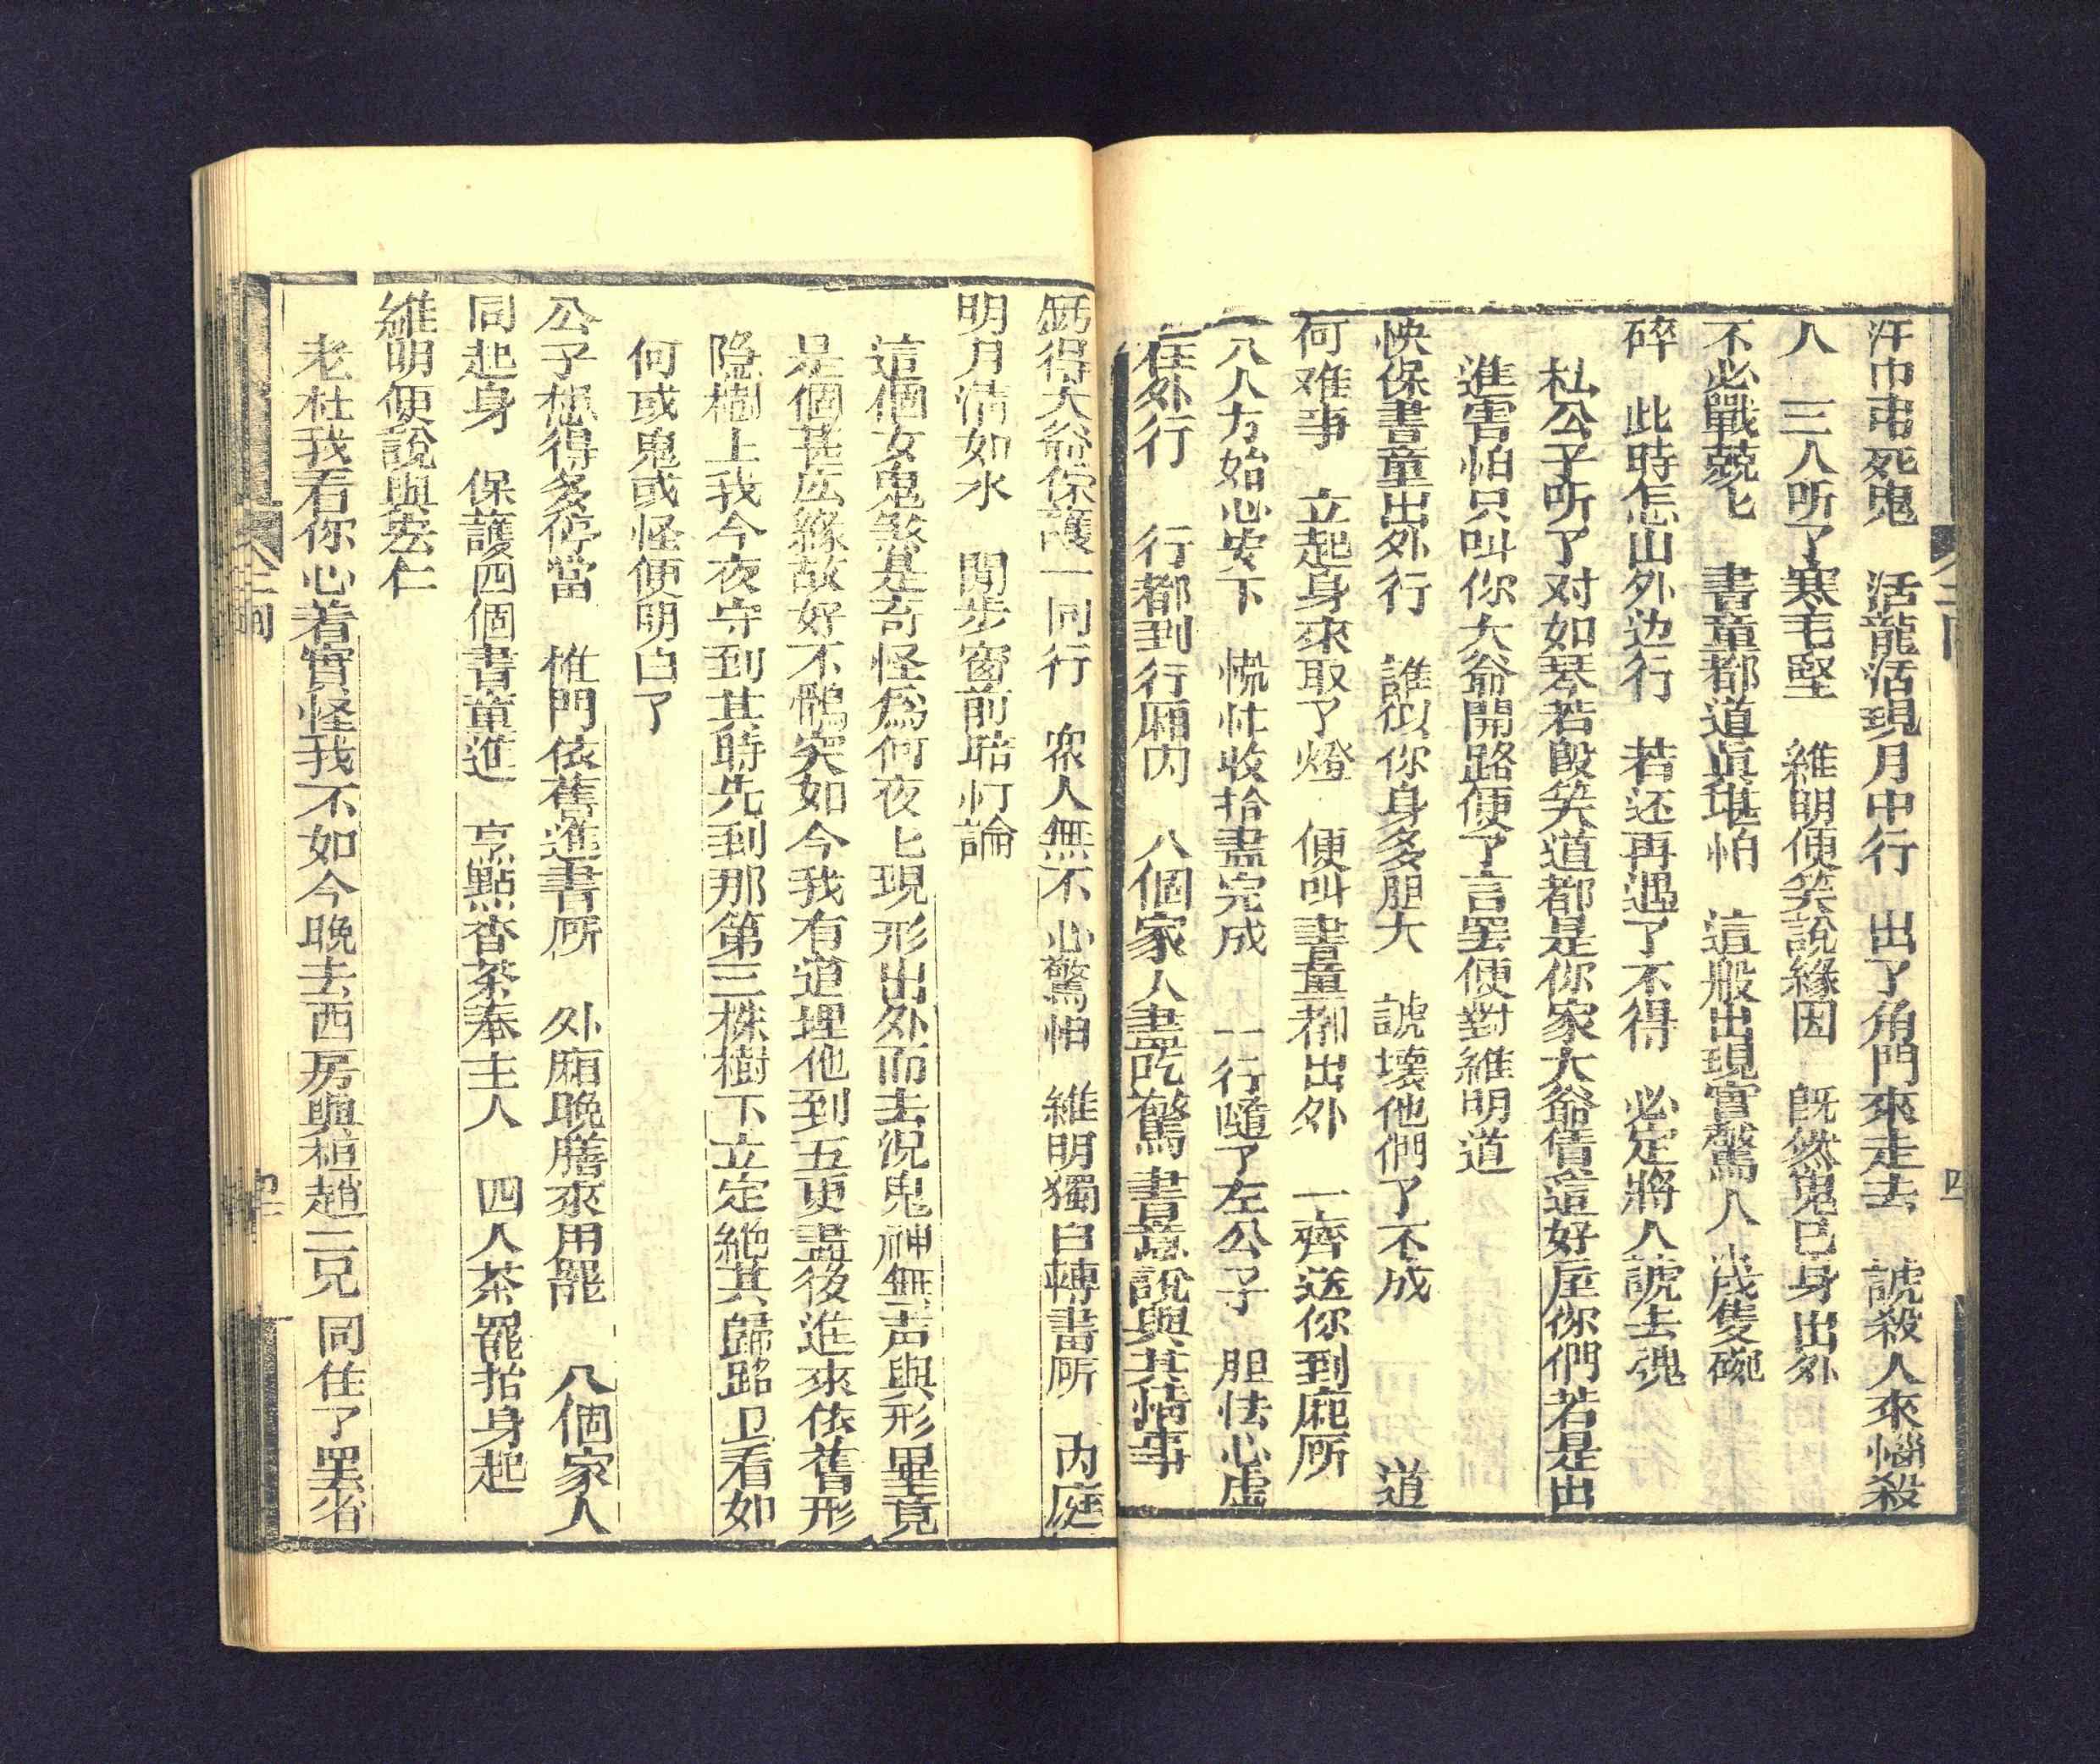 汗巾弔死鬼　活龍活現月中行　出了角門來走去　諕殺人來惱殺
人　三人听了寒毛堅　維明便笑說緣因　旣然鬼已身出外
不必戰兢匕　書童都道眞堪怕　這般出現實驚人　㡬隻碗
碎　此時怎出外边行　若还再遇了不得　必定將人諕去魂
杜公子听了对如琴若殷笑道都是你家大爺債這好座你們若是出
進害怕只叫你大爺開路便了言罢便對維明道
快保書童出外行　誰似你身多胆大　諕壞他們了不成　道
何难事　立起身來取了燈　便叫書童都出外　一齊送你到廂所
八人方始心安下　慌忙收拾盡完成　一行隨了左公子　胆怯心虛
在外行　行都到行廂内　八個家人盡吃驚　書童說與其情事
虧得大爺保護一同行　衆人無不心驚怕　維明獨自轉書所　内庭
明月清如水　閒步窗前暗忖論
這個女鬼煞是奇怪爲何夜匕現形出外而去况鬼神無声與形畢竟
是個甚庅緣故好不鶻突如今我有道理他到五更盡後進來依舊形
隐樹上我今夜守到其時先到那第三株樹下立定絶其歸路卫看如
何或鬼或怪便明白了
公子想得多停當　推門依舊進書所　外廂晚膳來用罷　八個家人
同起身　保護四個書童進　烹㸃香茶奉主人　四人茶罷抬身起
維明便說與宏仁
老杜我看你心着實怪我不如今晚去西房與桓趙二兄同住了罢省